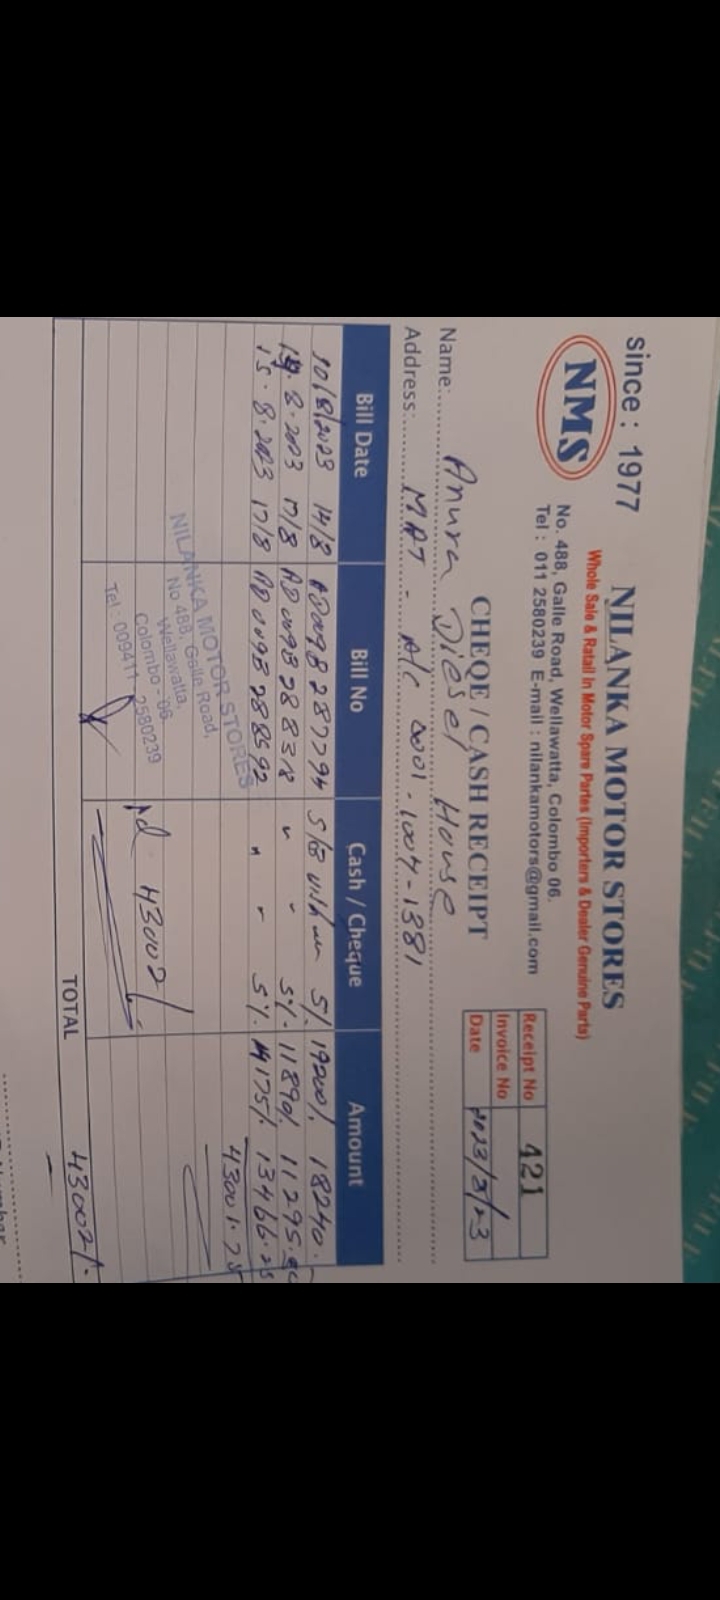 since : 1977
NMS
NILANKA MOTOR STORES
Whole Sale & Ratail In Motor Spare Partes (Importers & Dealer Genuine Parts)
No. 488, Galle Road, Wellawatta, Colombo 06.
Tel : 011 2580239 E-mail : nilankamotors@gmail.com
CHEQE / CASH RECEIPT
Receipt No 421
Invoice No
Date 2023/8/23
Name: Anura Diesel House
Address: MAT - A/C 0001-1007-1381
Bill Date Bill No Cash / Cheque Amount
10/8/2023 14/8 AD009B287794 5/. 19200/. 18240.
8.2023 17/8 AD009B288318 " " 5%. 11890/. 11295.50
15.8.2023 17/8 AD009B288592 " " 5%. 14175/. 13466.25
43001.25
NILANKA MOTOR STORES
No 488, Galle Road,
Wellawatta,
Colombo - 06
Tel : 009411 2580239
43002/.
TOTAL 43002/.